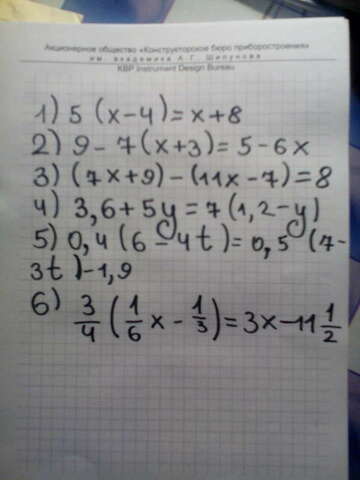 Акционерное общество «Конструкторское бюро приборостроения»
им. академика А.Г. Шипунова
KBP Instrument Design Bureau
1) 5 (x-4)=x+8
2) 9-7(x+3)=5-6x
3) (7x+9)-(11x-7)=8
4) 3,6+5y=7(1,2-y)
5) 0,4(6-4t)=0,5(7-
3t)-1,9
6) 3/4 (1/6 x - 1/3)=3x-11 1/2